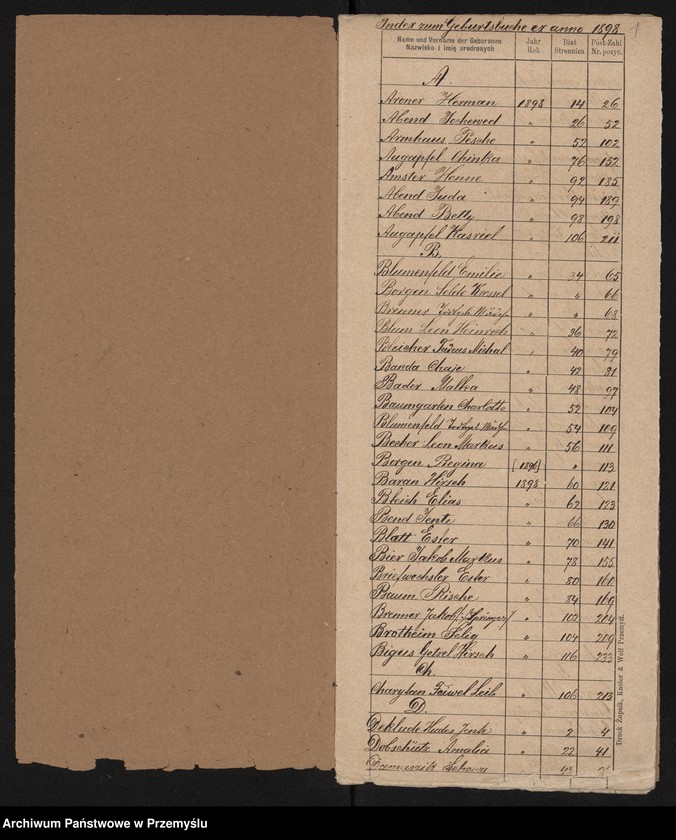 Index zum Geburtsbuche ex anno 1898 1
Name und Vorname der Geborenen Jahr Blat Post-Zahl
Nazwisko i imię urodzonych Rok Stronnica Nr. pozyc.
A.
Aroner Herman 1898 14 26
Abend Jochewed " 26 52
Armhaus Pesche " 52 102
Augapfel Chinka " 76 152
Amster Henne " 92 185
Abend Juda " 94 189
Abend Betty " 98 198
Augapfel Kasriel " 106 211
B.
Blumenfeld Emilie " 34 65
Borgen Selde Kressel " " 66
Brenner " " 68
Blum Leon Heinrich " 36 72
Bleicher Michal " 40 79
Banda Chaje " 42 81
Bader Malka " 48 97
Baumgarten Charlotte " 52 104
Blumenfeld " 54 109
Becher Leon Markus " 56 111
Borgen Regina [1896] " 113
Baran Hirsch 1898 60 121
Bleich Elias " 62 123
Bend Jente " 66 130
Blatt Ester " 70 141
Bier Jakob Markus " 78 155
Briefwechsler Ester " 80 160
Baum Rische " 84 169
Brenner Jakob " 102 204
Brotheim Selig " 104 209
Bigus Getzel Hirsch " 116 233
Ch.
Charytan Feiwel Leib " 106 213
D.
Deklade Hudes Jente " 2 4
Dobschütz Amalia " 22 41
Druck Żupnik, Knoller & Wolf Przemyśl.
Archiwum Państwowe w Przemyślu